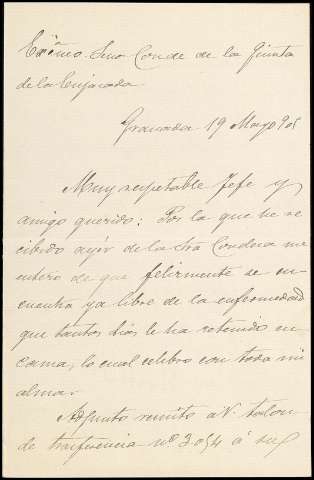 Excmo. Snr Conde de la Quinta
de la Enjarada
Granada 19 Mayo 905
Muy respetable Jefe y
amigo querido: Por la que he re
cibido ayer de la Sra Condesa me
entero de que felizmente se en
cuentra ya libre de la enfermedad
que tantos dias le ha retenido en
cama, lo cual celebro con toda mi
alma.
Adjunto remito a V. talon
de trasferencia nº 3.054 á sus